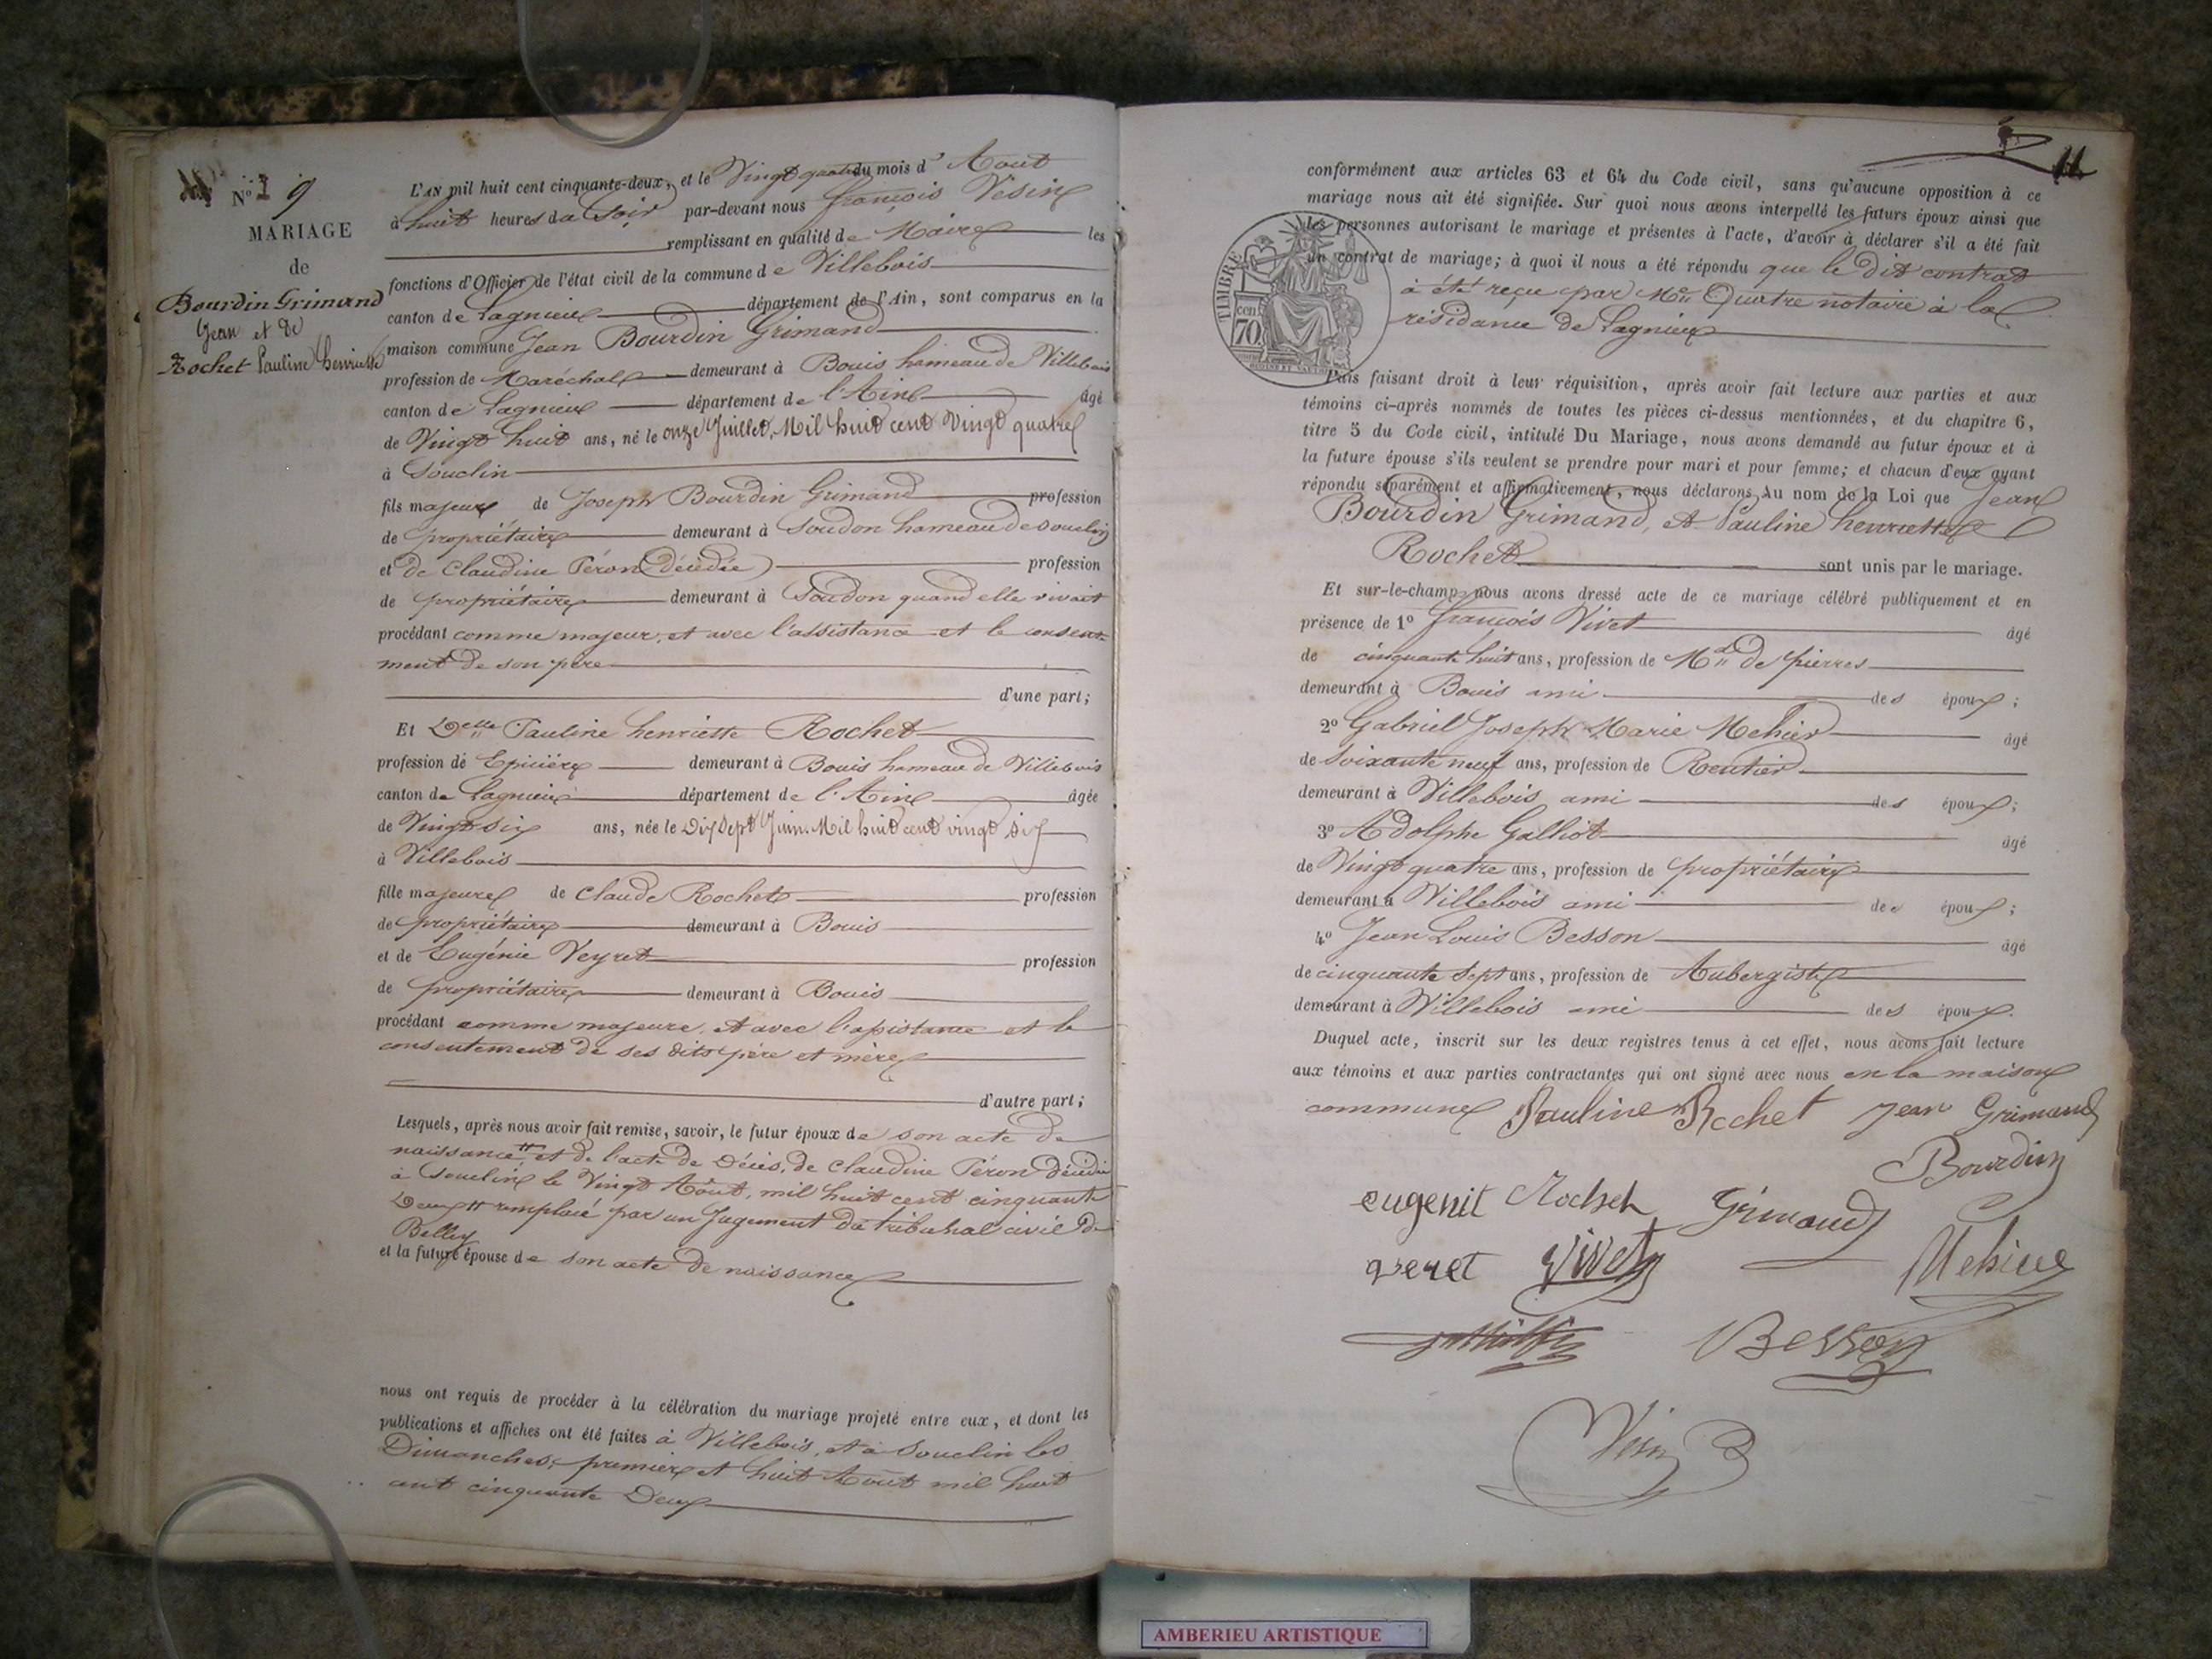 N° 9
MARIAGE
de
Bourdin Grimand
Jean et de
Rochet Pauline henriette
L'AN mil huit cent cinquante-deux, et le Vingt quatre du mois d' Aout
à huit heures du Soir par-devant nous françois Vésin
remplissant en qualité de Maire les
fonctions d'Officier de l'état civil de la commune de Villebois
canton de Lagnieu département de l'Ain, sont comparus en la
maison commune Jean Bourdin Grimand
profession de Maréchal demeurant à Bouis hameau de Villebois
canton de Lagnieu département de l'Ain âgé
de Vingt huit ans, né le onze Juillet, Mil huit cent Vingt quatre
à Souclin
fils majeur de Joseph Bourdin Grimand profession
de propriétaire demeurant à Soudon hameau de Souclin
et de Claudine Péron (décédée) profession
de propriétaire demeurant à Soudon quand elle vivait
procédant comme majeur, et avec l'assistance et le consente
ment de son père
d'une part;
Et Delle Pauline henriette Rochet
profession de Epicière demeurant à Bouis hameau de Villebois
canton de Lagnieu département de l'Ain âgée
de Vingt six ans, née le Dix Sept Juin. Mil huit cent vingt six
à Villebois
fille majeure de Claude Rochet profession
de propriétaire demeurant à Bouis
et de Eugénie Veyret profession
de propriétaire demeurant à Bouis
procédant comme majeure, et avec l'assistance et le
consentement de ses dits père et mère
d'autre part;
Lesquels, après nous avoir fait remise, savoir, le futur époux de son acte de
naissance et de l'acte de Décès, de Claudine Péron décédée
à Souclin le Vingt Aôut, mil huit cent cinquante
Deux remplacé par un Jugement du tribunal civil de
Belley
et la future épouse de son acte de naissance
nous ont requis de procéder à la célébration du mariage projeté entre eux, et dont les
publications et affiches ont été faites à Villebois, et à Souclin les
Dimanches, premier et huit Aout mil huit
cent cinquante Deux
11
conformément aux articles 63 et 64 du Code civil, sans qu'aucune opposition à ce
mariage nous ait été signifiée. Sur quoi nous avons interpellé les futurs époux ainsi que
les personnes autorisant le mariage et présentes à l'acte, d'avoir à déclarer s'il a été fait
un contrat de mariage; à quoi il nous a été répondu que le dit contrat
à été reçu par Me Quatre notaire à la
résidance de Lagnieu
TIMBRE
70 cen
Puis faisant droit à leur réquisition, après avoir fait lecture aux parties et aux
témoins ci-après nommés de toutes les pièces ci-dessus mentionnées, et du chapitre 6,
titre 5 du Code civil, intitulé Du Mariage, nous avons demandé au futur époux et à
la future épouse s'ils veulent se prendre pour mari et pour femme; et chacun d'eux ayant
répondu séparément et affirmativement, nous déclarons Au nom de la Loi que Jean
Bourdin Grimand, et Pauline henriette
Rochet sont unis par le mariage.
Et sur-le-champ nous avons dressé acte de ce mariage célébré publiquement et en
présence de 1° françois Vivet âgé
de cinquante huit ans, profession de Md de pierres
demeurant à Bouis ami des époux;
2° Gabriel Joseph Marie Mehier âgé
de Soixante neuf ans, profession de Rentier
demeurant à Villebois ami des époux;
3° Adolphe Galliot âgé
de Vingt quatre ans, profession de propriétaire
demeurant à Villebois ami des époux;
4° Jean Louis Besson âgé
de cinquante Sept ans, profession de Aubergiste
demeurant à Villebois ami des époux.
Duquel acte, inscrit sur les deux registres tenus à cet effet, nous avons fait lecture
aux témoins et aux parties contractantes qui ont signé avec nous en la maison
commune Pauline Rochet Jean Grimand
Bourdin
eugenit Rochet Grimaud
veret Vivet Mehier
Besson
Vésin
AMBERIEU ARTISTIQUE